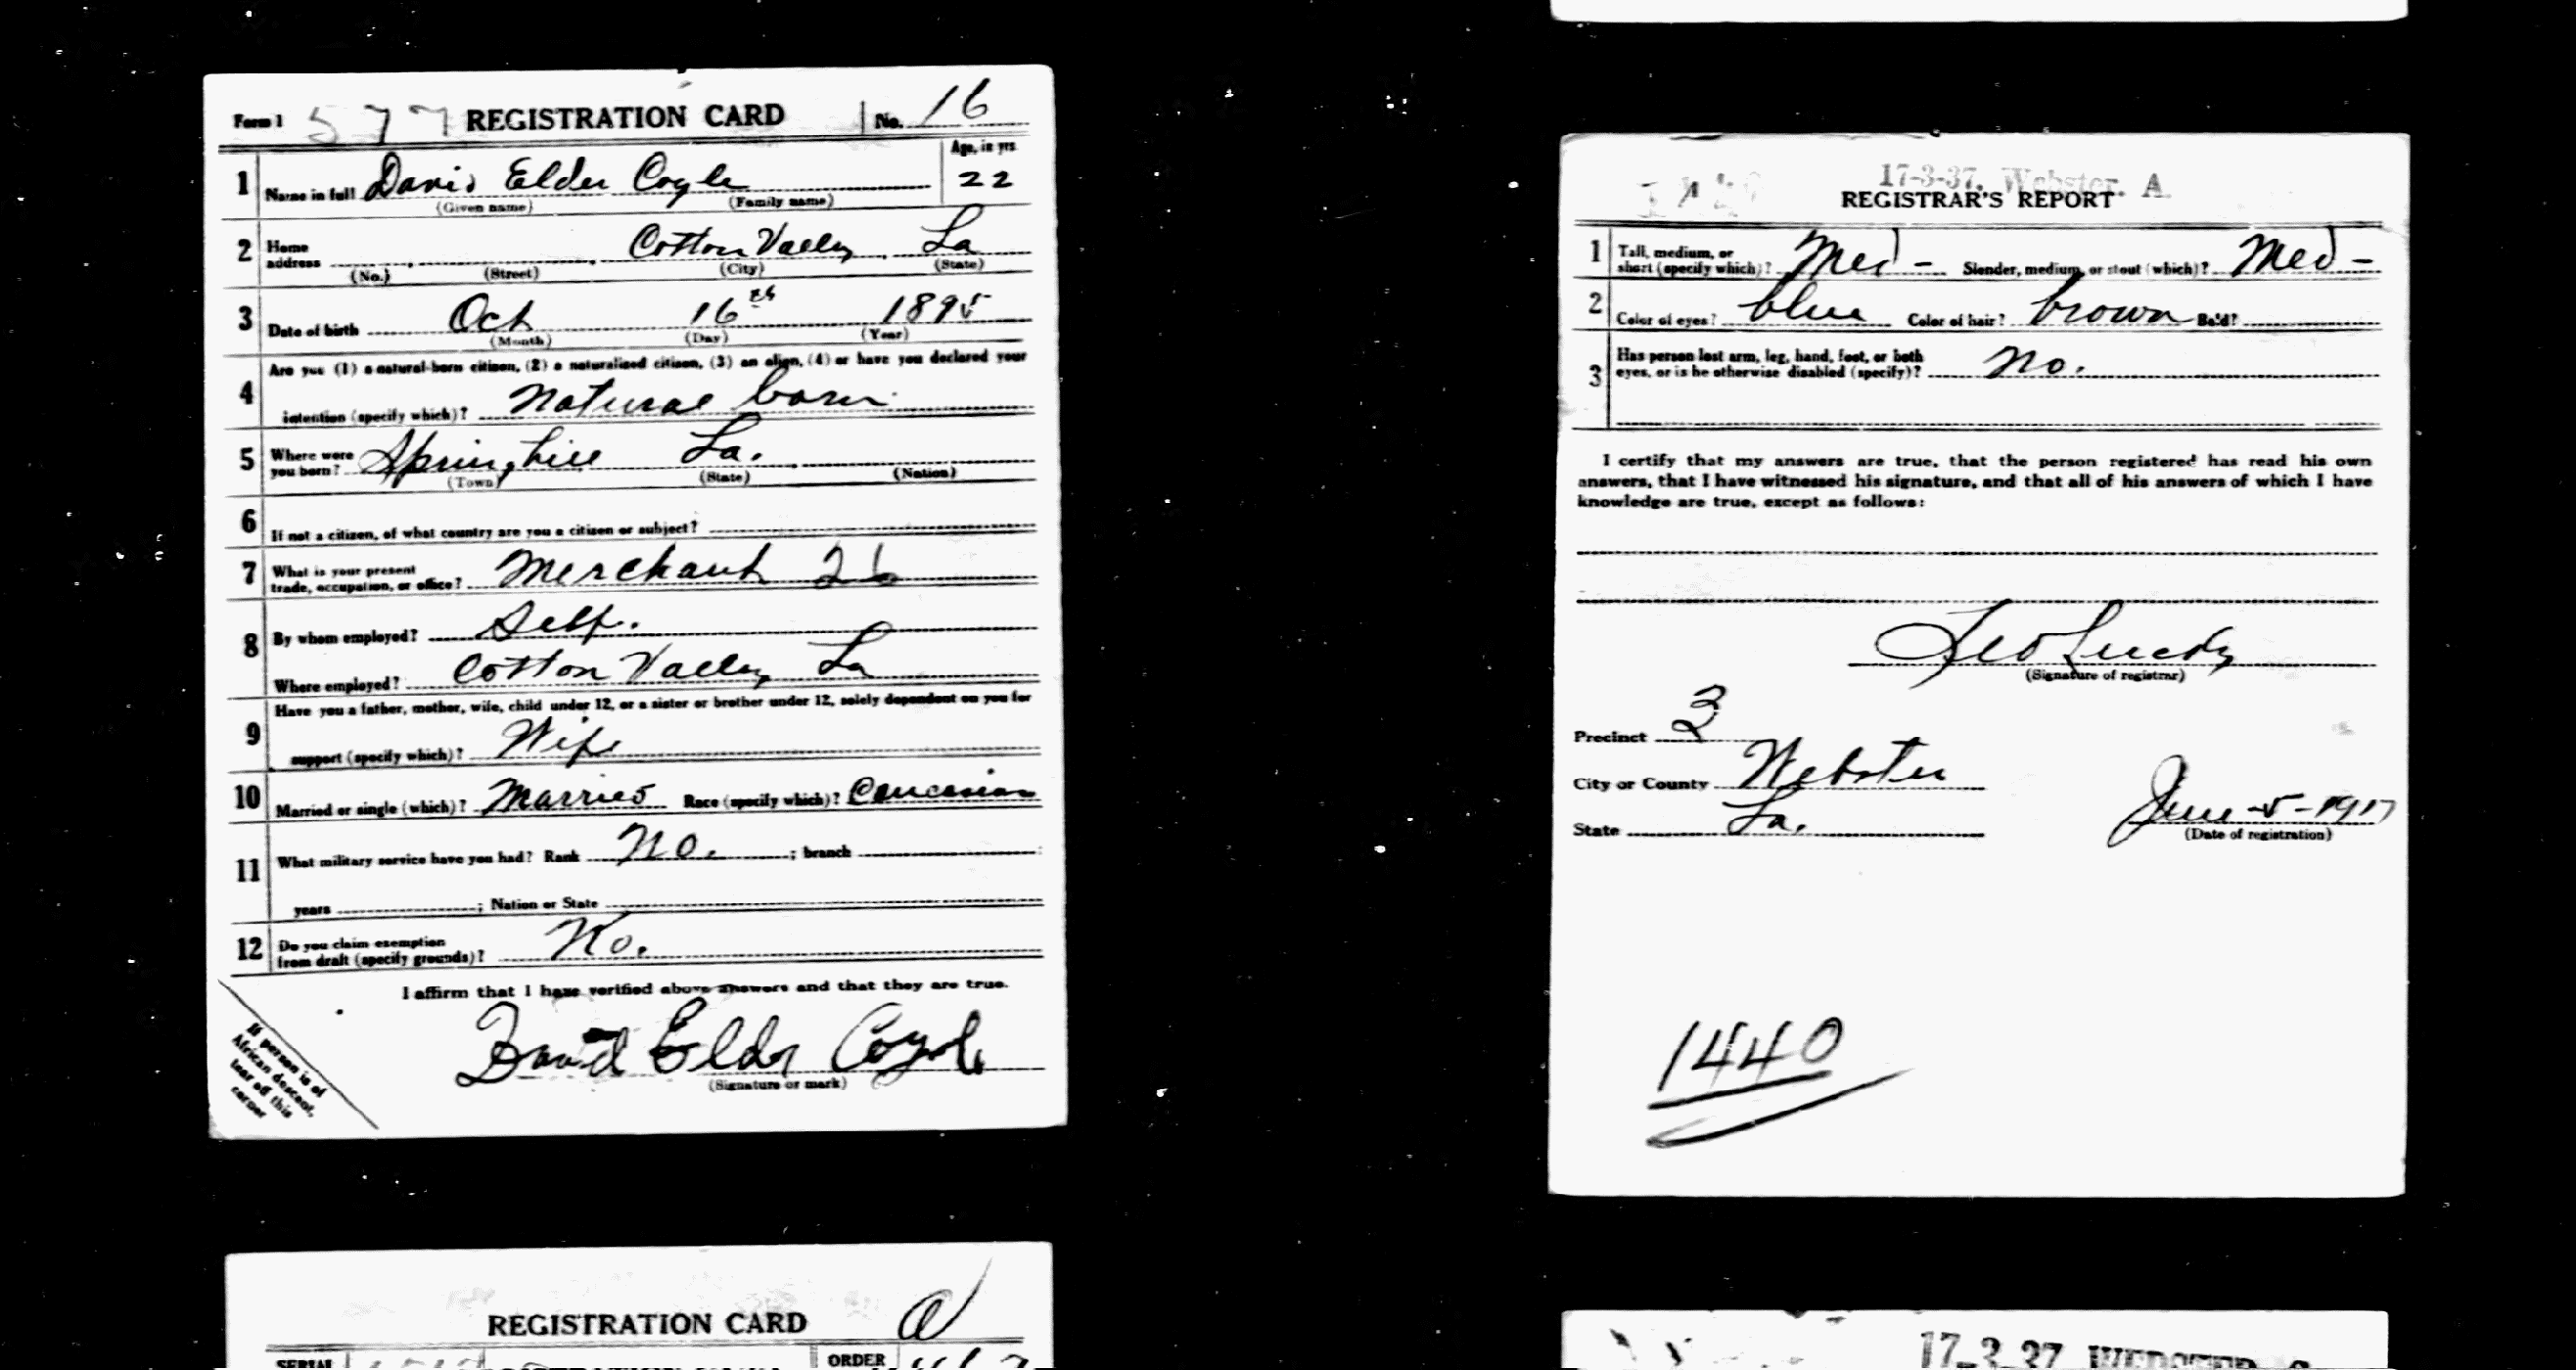 Form 1 577 REGISTRATION CARD No. 16
Age, in yrs
1 Name in full David Elder Coyle 22
(Given name) (Family name)
2 Home address Cotton Valley La
(No.) (Street) (City) (State)
3 Date of birth Oct 16th 1895
(Month) (Day) (Year)
4 Are you (1) a natural-born citizen, (2) a naturalized citizen, (3) an alien, (4) or have you declared your
intention (specify which)? Natural born
5 Where were you born? Springhill La.
(Town) (State) (Nation)
6 If not a citizen, of what country are you a citizen or subject?
7 What is your present trade, occupation, or office? Merchant 26
8 By whom employed? Self.
Where employed? Cotton Valley La
9 Have you a father, mother, wife, child under 12, or a sister or brother under 12, solely dependent on you for
support (specify which)? Wife
10 Married or single (which)? Married Race (specify which)? Caucasian
11 What military service have you had? Rank no. ; branch
years ; Nation or State
12 Do you claim exemption from draft (specify grounds)? No.
I affirm that I have verified above answers and that they are true.
David Elder Coyle
(Signature or mark)
If person is of
African descent,
tear off this
corner
REGISTRATION CARD
SERIAL
ORDER
17-3-37. Webster. A
REGISTRAR'S REPORT
1 Tall, medium, or short (specify which)? Med - Slender, medium, or stout (which)? Med -
2 Color of eyes? blue Color of hair? brown Bald?
3 Has person lost arm, leg, hand, foot, or both
eyes, or is he otherwise disabled (specify)? no.
I certify that my answers are true, that the person registered has read his own
answers, that I have witnessed his signature, and that all of his answers of which I have
knowledge are true, except as follows:
(Signature of registrar)
Precinct 3
City or County Webster
State La.
June-5-1917
(Date of registration)
1440
17-3-37 WEBSTER